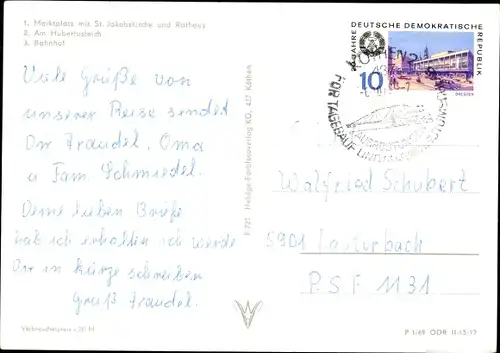 1. Marktplatz mit St. Jakobskirche und Rathaus
2. Am Hubertusteich
3. Bahnhof
Viele Grüße von
unserer Reise sendet
Dir Traudel. Oma
u Fam. Schmiedel.
Deine lieben Briefe
hab ich erhalten ich werde
Dir in kürze schreiben
Gruß Traudel.
Verbraucherpreis -,20 M
KG, 437 Köthen
20 JAHRE
DEUTSCHE DEMOKRATISCHE
REPUBLIK
10
DRESDEN
KÖTHEN
FÜR TAGEBAUE UND
Walfried Schubert
5901 Lauterbach
PSF 1131
P 1/69 ODR II-15-17